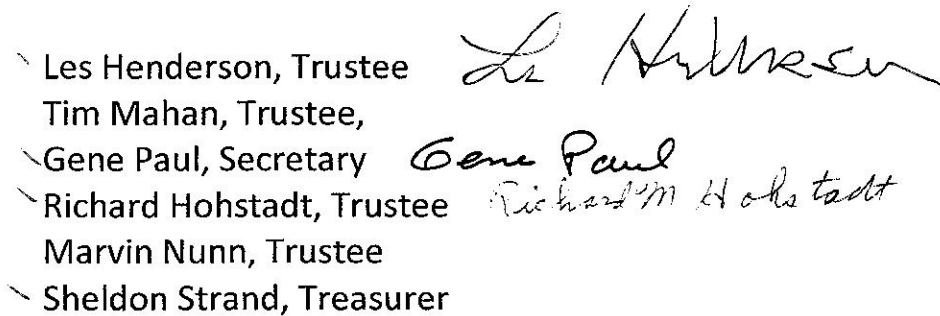 Les Henderson, Trustee Les Henderson
Tim Mahan, Trustee,
Gene Paul, Secretary Gene Paul
Richard Hohstadt, Trustee Richard M Hohstadt
Marvin Nunn, Trustee
Sheldon Strand, Treasurer